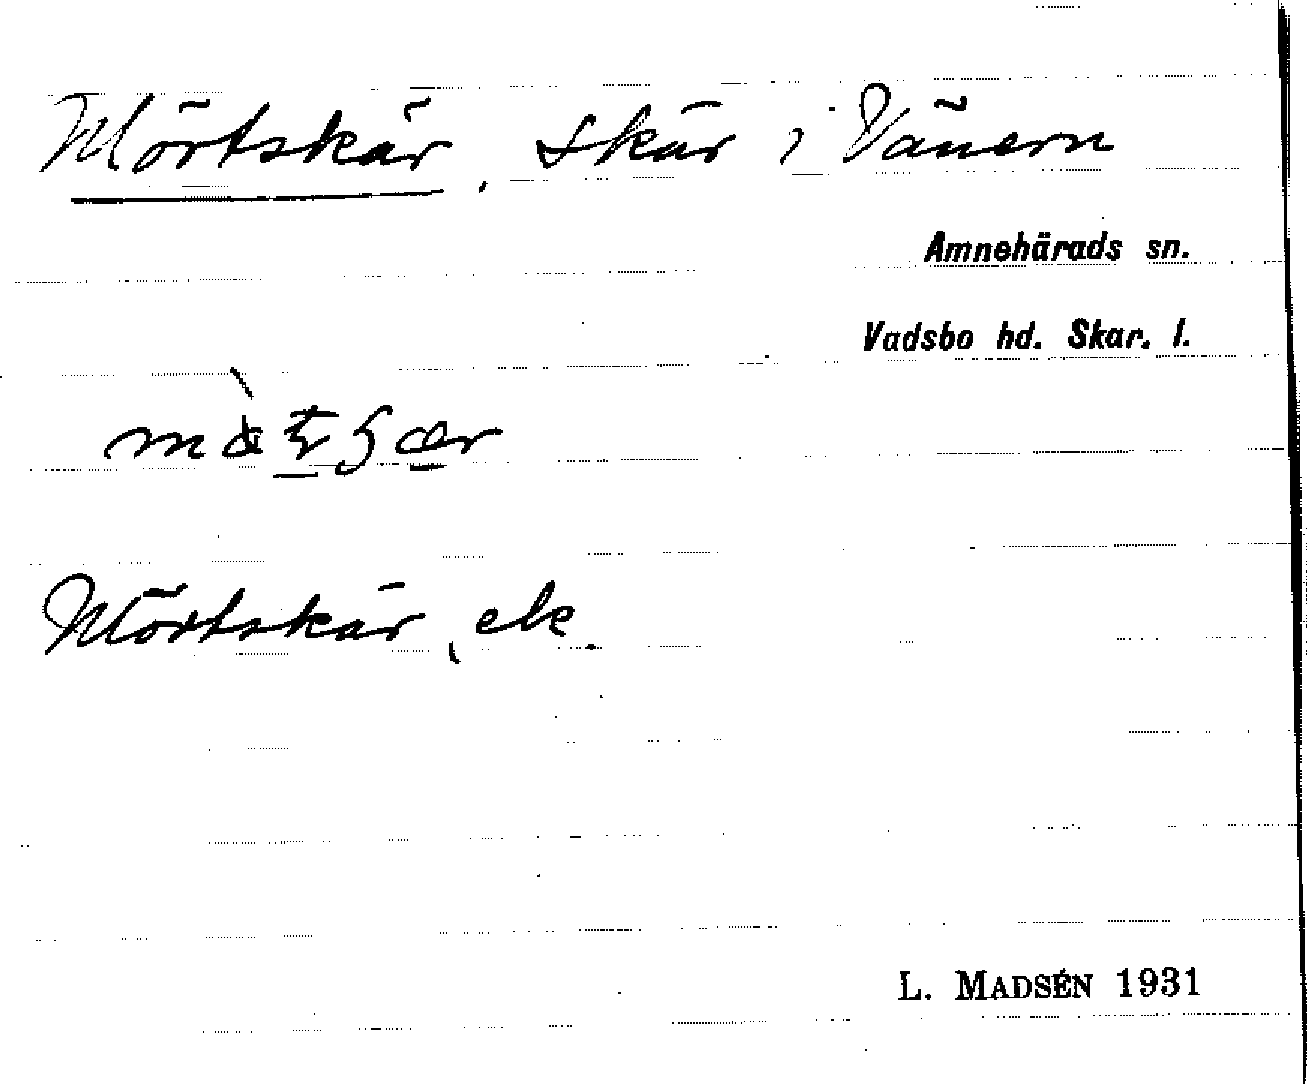 Mörtskär, skär i Vänern
Amnehärads sn.
Vadsbo hd. Skar. l.
Mörtskär, ek.
L. MADSÉN 1931